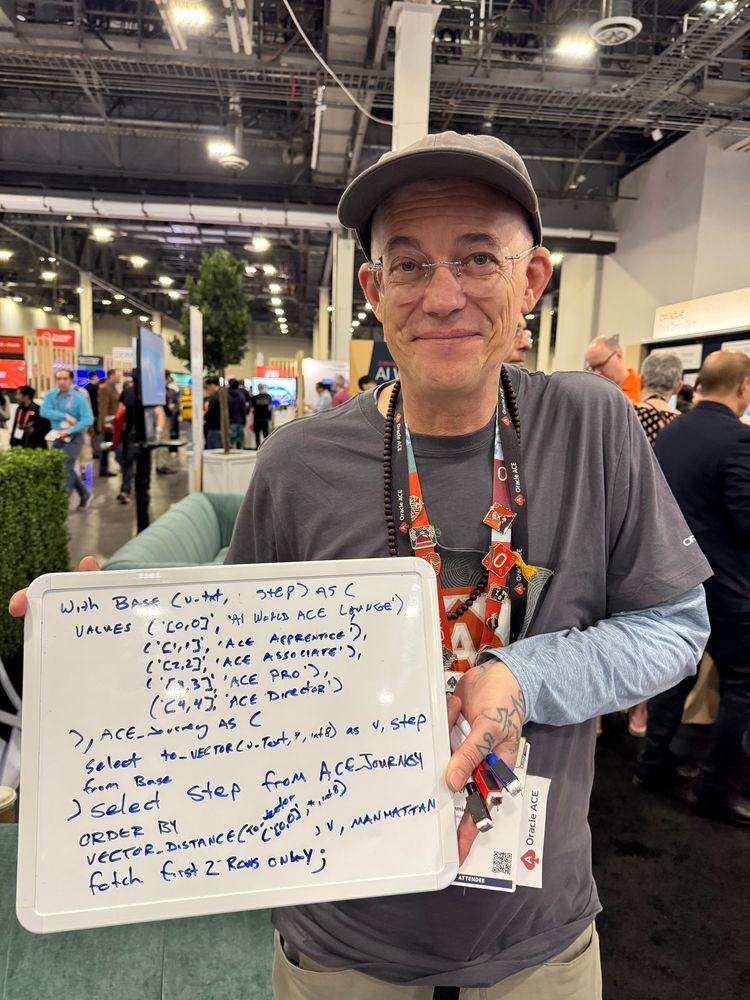 With BASE (v-txt, step) AS (
VALUES ('[0,0]', 'AI WORLD ACE LOUNGE')
('[1,1]', 'ACE APPRENTICE'),
('[2,2]', 'ACE ASSOCIATE'),
('[3,3]', 'ACE PRO'),
('[4,4]', 'ACE DIRECTOR')
), ACE_Journey AS (
select to_VECTOR(v-Text, *, int8) as v, step
from Base
) select step from ACE_JOURNEY
ORDER BY
VECTOR_DISTANCE(TO_vector('[0,0]', *, int8), v, MANHATTAN
fetch first 2 ROWS ONLY;
Oracle ACE
Oracle ACE
Oracle ACE
Oracle ACE
ATTENDEE
AI W